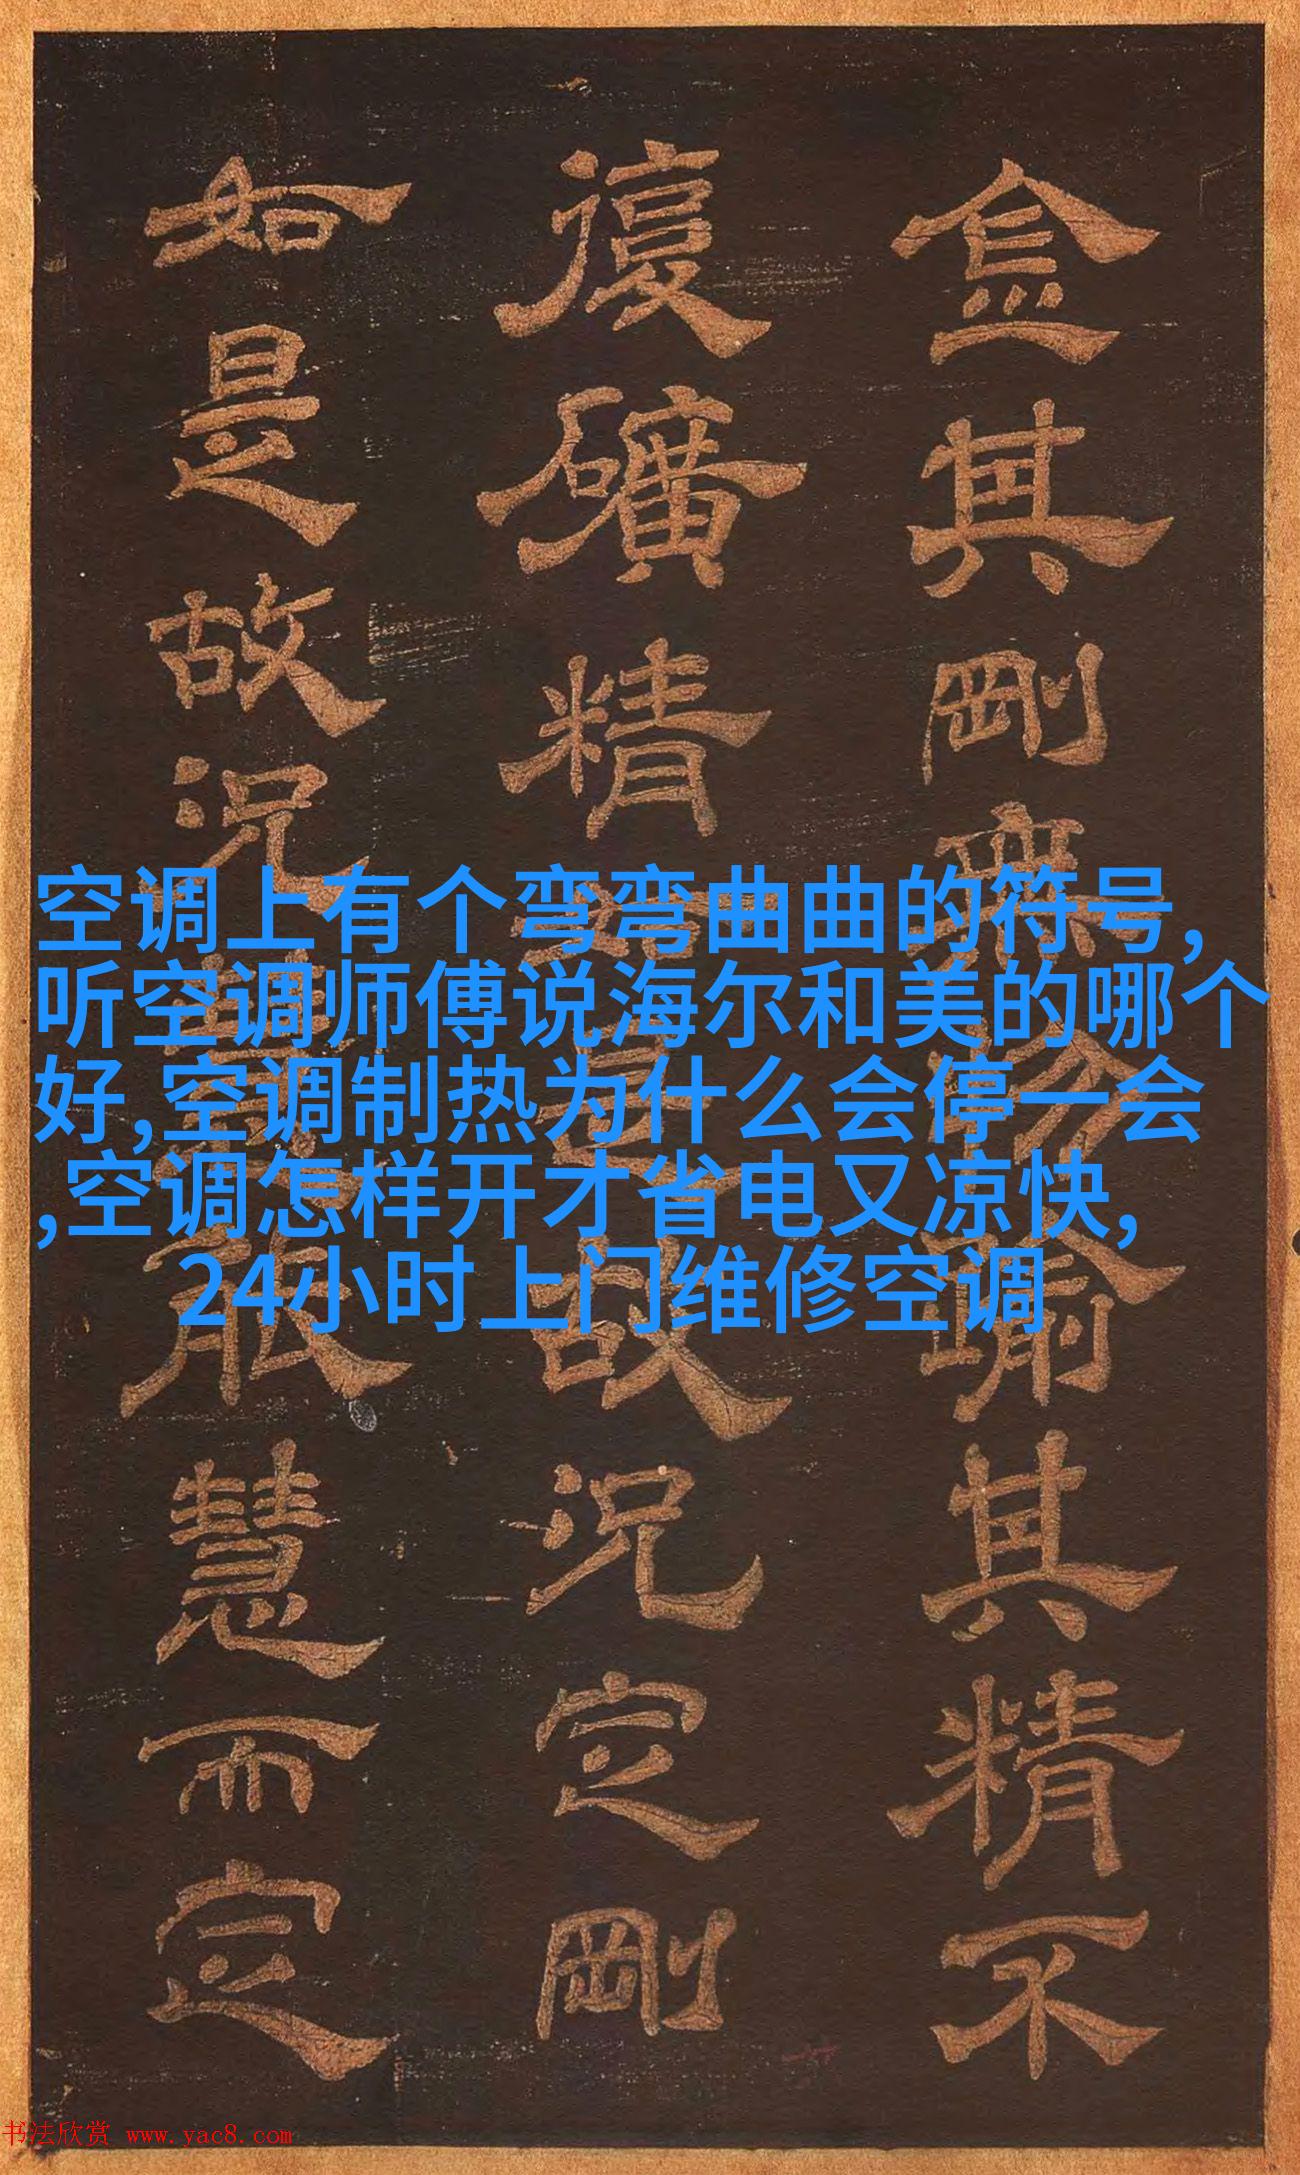 金其剛無物踰其精不
復礦精是故況定剛
如是故況慧而定
空调上有个弯弯曲曲的符号,
听空调师傅说海尔和美的哪个
好,空调制热为什么会停一会
,空调怎样开才省电又凉快,
24小时上门维修空调
书法欣赏 www.yac8.com